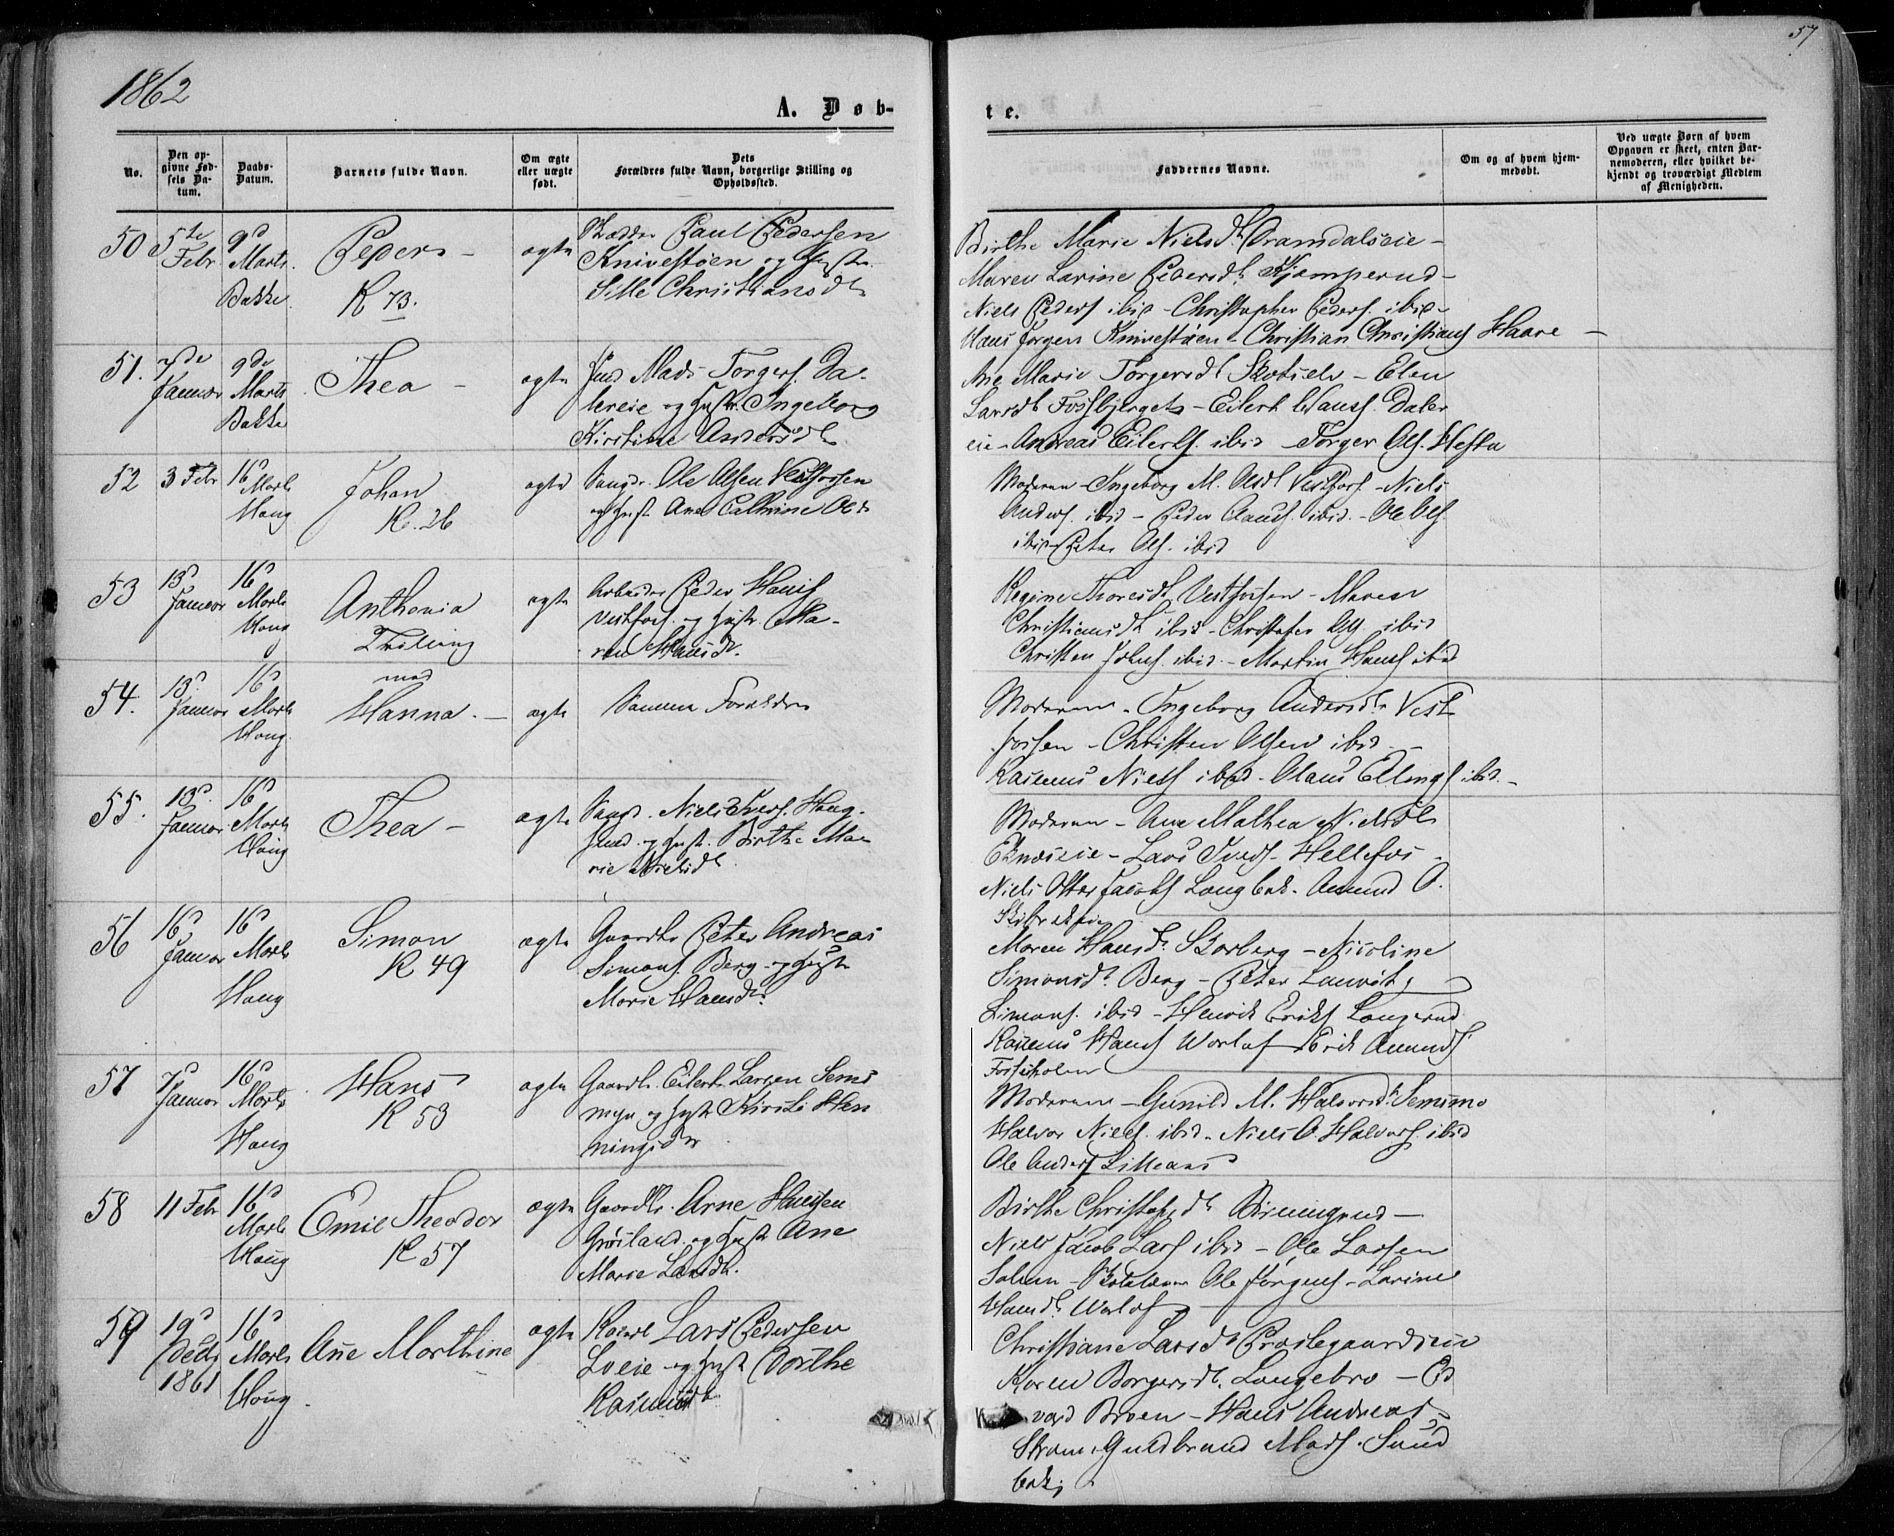 1862
57
A. Døb-
te.
No.
Den op-
givne Fød-
sels Da-
tum.
Daabs-
Datum.
Barnets fulde Navn.
Om ægte
eller uægte
født.
Dets
Forældres fulde Navn, borgerlige Stilling og
Opholdssted.
Faddernes Navne.
Om og af hvem hjem-
medøbt.
Ved uægte Børn af hvem
Opgaven er skeet, enten Bar-
nemoderen, eller hvilket be-
kjendt og troværdigt Medlem
af Menigheden.
50
5te
Febr
9d
Marts
Bakke
Peder
K 73.
ægte
Paul Pedersen
Knivestøen og
Christiansdt
Birthe Marie Nielsdt Dramdalseie -
Maren Larine Pedersdt Kjemperud -
Niels Peders ibid - Christopher Peders. ibid -
Hans Jørgen Knivestøen - Christian Christians Haare -
51.
7de
Januar
9de
Marts
Bakke
Thea -
ægte
Mads Torgers. Da-
lereie og Hustr. Ingeborg
Kirstine Andersdt
Ane Marie Torgersdt - Elen
Larsdt Fossbjerget - Eilert Hans. Daler
eie - Andreas Eilerts. ibid - Torger Ols. Hesta
52
3 Febr
16d
Marts
Haug
Johan
K. 26
ægte
Ole Olsen Vestfossen
og Hustr. Ane Cathrine Olsd
Moderen - Ingeborg M. Olsdt Vestfos. - Niels
Anders. ibid - Peder Claus. ibid. - Ole Ols.
ibid - Peter Ols. ibid
53
13d
Januar
16d
Marts
Haug
Anthonia
Tvilling
med
ægte
Arbeider Peder Hans
Vestfos. og Hustr. Ma-
ren Hansdt.
Regine Thoresdt Vestfossen - Maren
Christiansdt ibid - Christofer Ols. ibid
Christen Johns. ibid. - Martin Hans ibid
54.
13d.
Januar
16d
Marts
Haug.
Hanna. -
ægte
Samme Forældre
Moderen - Ingeborg Andersdt. Vest
fossen - Christen Olsen ibid. -
Rasmus Niels ibid - Olaus Ellings ibid. -
55.
13d.
Januar.
16d
Marts
Haug
Thea -
ægte
Niels Ivers. Haug-
og Hustr. Birthe Ma-
rie Nielsdt.
Moderen - Ane Mathea Nielsdt
- Lars Hellefos -
Niels Jacobs Langbak - Amund O.
56
16d
Januar
16
Marts
Haug
Simon
K 49
ægte
Gaardbr Peter Andreas
Simons. Berg og Hustr
Marie Hansdt.
Maren Hansdt. Skarberg - Nicoline
Simonsdt Berg - Peter Lauritz
Simons. ibid - Henrik Eriks Langerud
Rasmus Hans Erik Amunds
Fossesholm
57
7d
Januar
16d
Marts
Haug
Hans
K 53
ægte
Gaardbr. Eilert Larsen Sems
myr og Hustr Kirsti Hen
ningsdtr
Moderen - Gunild M. Halvorsdt. Semsmo
Halvor Niels. ibid. - Niels O. Halvors. ibid
Ole Anders
58
11 Febr
16d
Marts
Haug
Emil Theodor
K 57
ægte
Gaardbr. Arne Hansen
og Hustr Ane
Marie Larsdt.
Birthe Christophsdt -
Niels Jacob Lars ibid - Ole Larsen
Ole Jørgens - Larine
Hansdt
59
19d
Decbr
1861
16d
Marts
Haug.
Ane Marthine
ægte
Lars Pedersen
og Hustr Dorthe
Rasmusdt
Christiane Larsdt Præstegaardseie
Karen Borgersdt. Langebro - Ed
vard Broen - Hans Andreas
Strøm. Guldbrand Mads. Sund
bak.